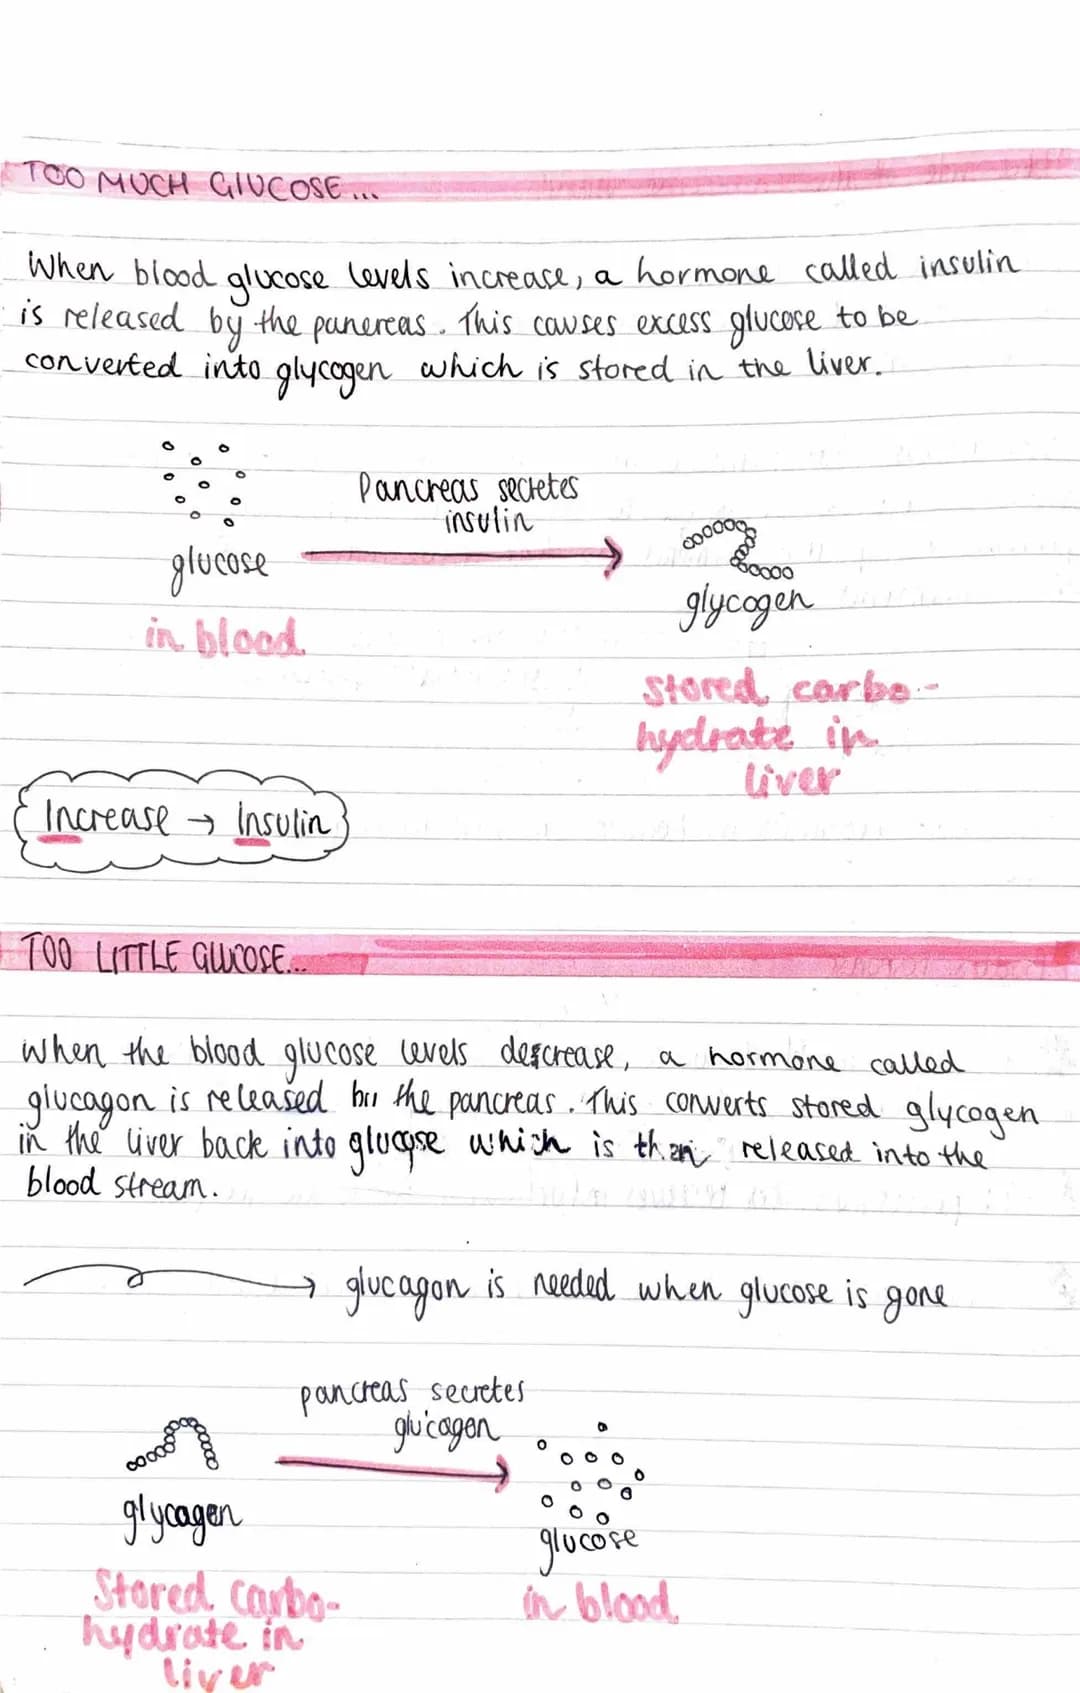 TOO MUCH GLUCOSE...
When blood glucose levels increase, a hormone called insulin
is released by the panereas. This causes excess glucose to be
converted into glycogen which is stored in the liver.
Pancreas secretes
insulin
glucose
glycogen
in blood
stored carbo-
hydrate in
liver
Increase → Insulin
TOO LITTLE GLUCOSE...
When the blood glucose levels descrease, a hormone called
glucagon is released by the pancreas. This converts stored glycogen
in the liver back into glucose which is then released into the
blood stream.
→ glucagon is needed when glucose is gone
pancreas secretes
glucagon
glycagen
glucose
Stored carbo-
hydrate in
liver
in blood